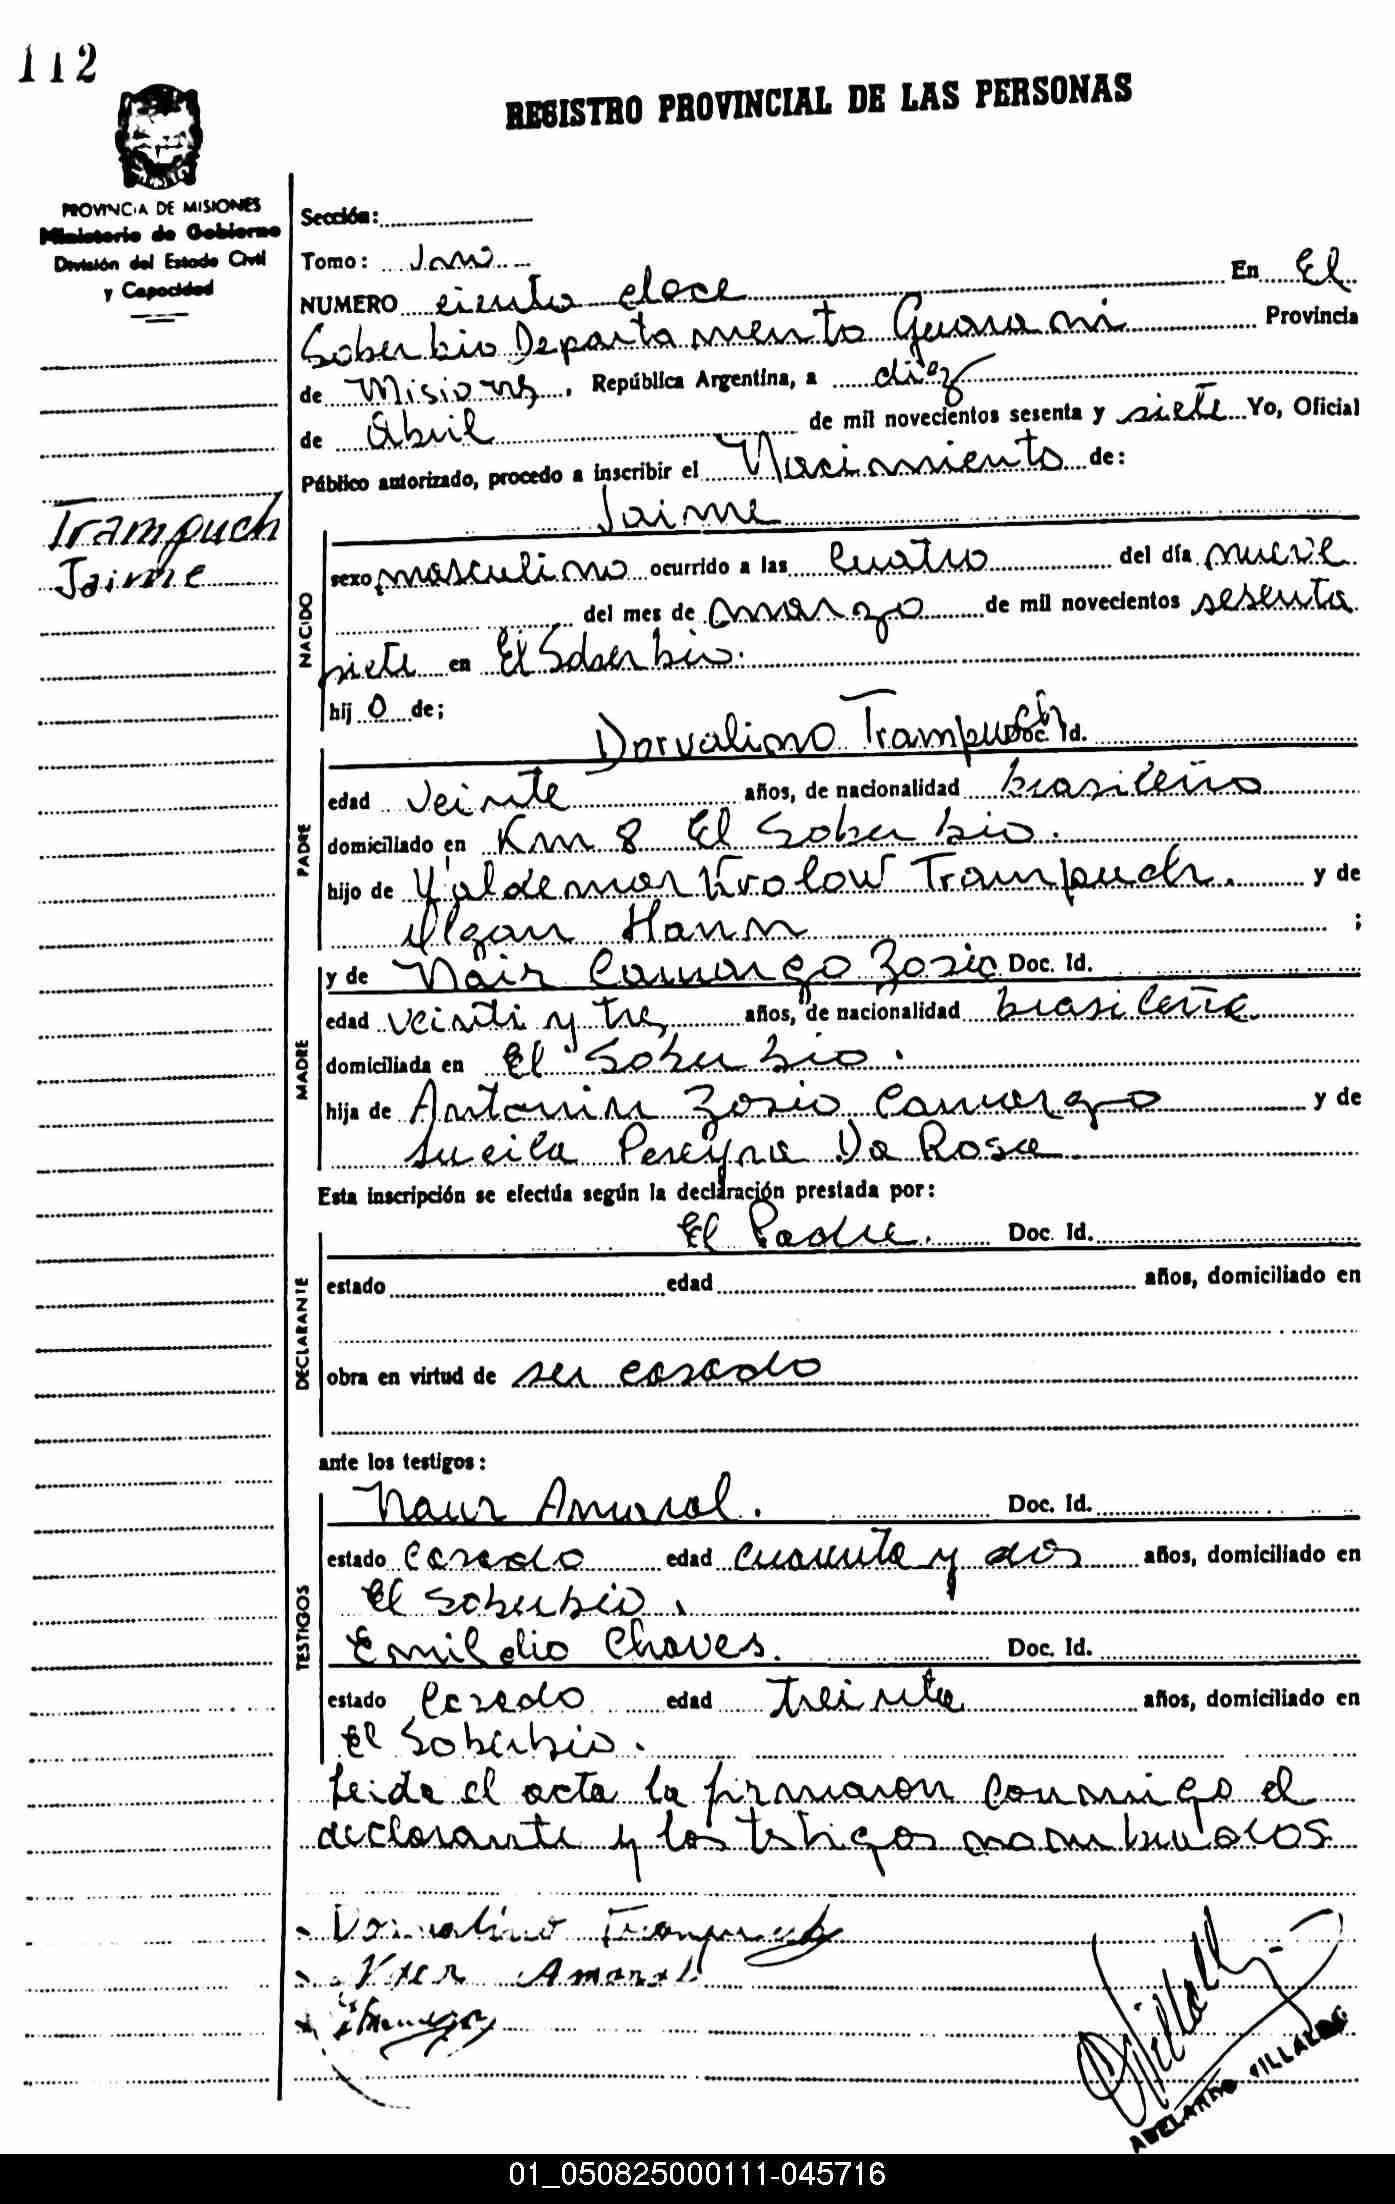 112
REGISTRO PROVINCIAL DE LAS PERSONAS
PROVINCIA DE MISIONES
Ministerio de Gobierno
División del Estado Civil
y Capacidad
Sección:
Tomo:
NUMERO ciento doce En El
Soberbio Departamento Guarani Provincia
de Misiones, República Argentina, a diez
de Abril de mil novecientos sesenta y siete Yo, Oficial
Público autorizado, procedo a inscribir el Nacimiento de:
Trampuch
Jaime
Jaime
NACIDO
sexo masculino ocurrido a las cuatro del día nueve
del mes de marzo de mil novecientos sesenta
siete en El Soberbio.
hij o de;
PADRE
Dorvalino Trampuch Doc. Id.
edad veinte años, de nacionalidad brasileño
domiciliado en Km 8 El Soberbio.
hijo de Valdemar Krolow Trampuch. y de
Ilgan Hann ;
MADRE
y de Nair Camargo Zosio Doc. Id.
edad veinti y tres años, de nacionalidad brasileña
domiciliada en El Soberbio.
hija de Antonin Zosio Camargo y de
Pereyra Da Rosa
Esta inscripción se efectúa según la declaración prestada por:
DECLARANTE
El Padre. Doc. Id.
estado edad años, domiciliado en
obra en virtud de ser casado
ante los testigos:
TESTIGOS
Naur Amaral. Doc. Id.
estado casado edad cuarenta y dos años, domiciliado en
El Soberbio.
Emildio Chaves. Doc. Id.
estado casado edad treinta años, domiciliado en
El Soberbio.
Leida el acta la firmaron conmigo el
declarante y los testigos nombrados
Dorvalino Trampuch
Amaral
ABELARDO VILLALBA
01_050825000111-045716